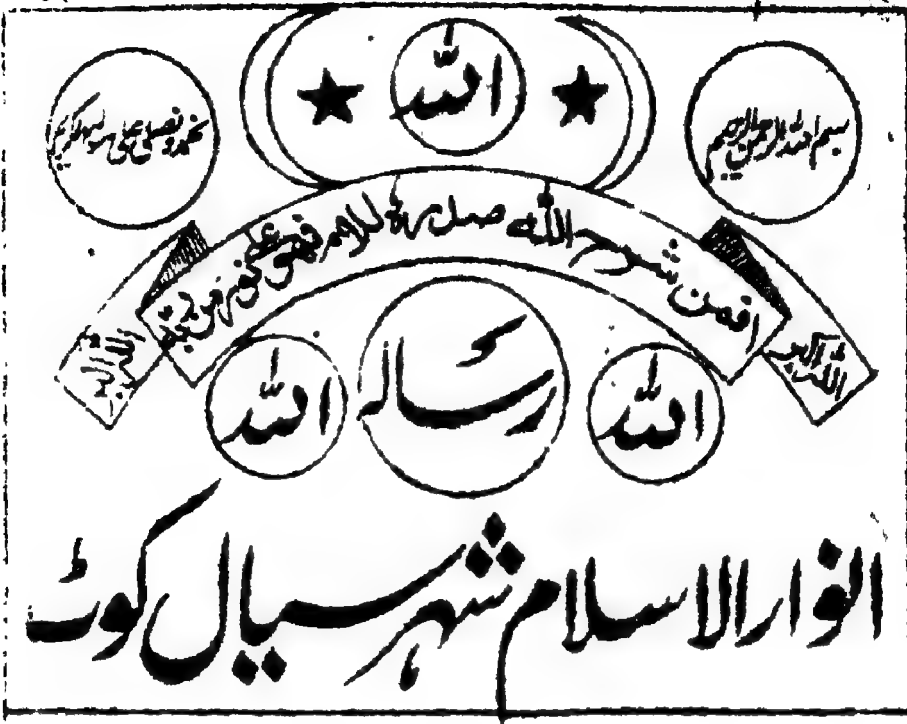 اللہ
بسم اللہ الرحمن الرحیم
نحمدہ ونصلی علی رسولہ الکریم
افمن شرح اللہ صدرہ للاسلام فھو علی نور من ربہ
اللہ اکبر
اللہ اکبر
اللہ
رسالہ
اللہ
انوار الاسلام شہر سیال کوٹ